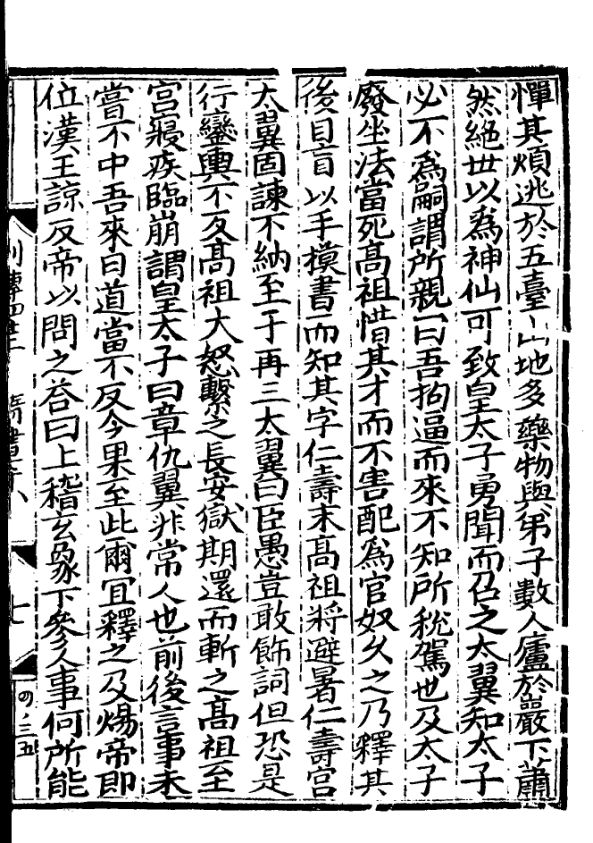 憚其煩逃於五臺山地多藥物與弟子數人廬於巖下蕭
然絕世以爲神仙可致皇太子勇聞而召之太翼知太子
必不爲嗣謂所親曰吾拘逼而來不知所稅駕也及太子
廢坐法當死高祖惜其才而不害配爲官奴久之乃釋其
後目盲以手模書而知其字仁壽末高祖將避暑仁壽宮
太翼固諫不納至于再三太翼曰臣愚豈敢飾詞但恐是
行鑾輿不反高祖大怒繫之長安獄期還而斬之高祖至
宮寢疾臨崩謂皇太子曰章仇翼非常人也前後言事未
嘗不中吾來日道當不反今果至此爾宜釋之及煬帝即
位漢王諒反帝以問之答曰上稽玄象下參人事何所能
七